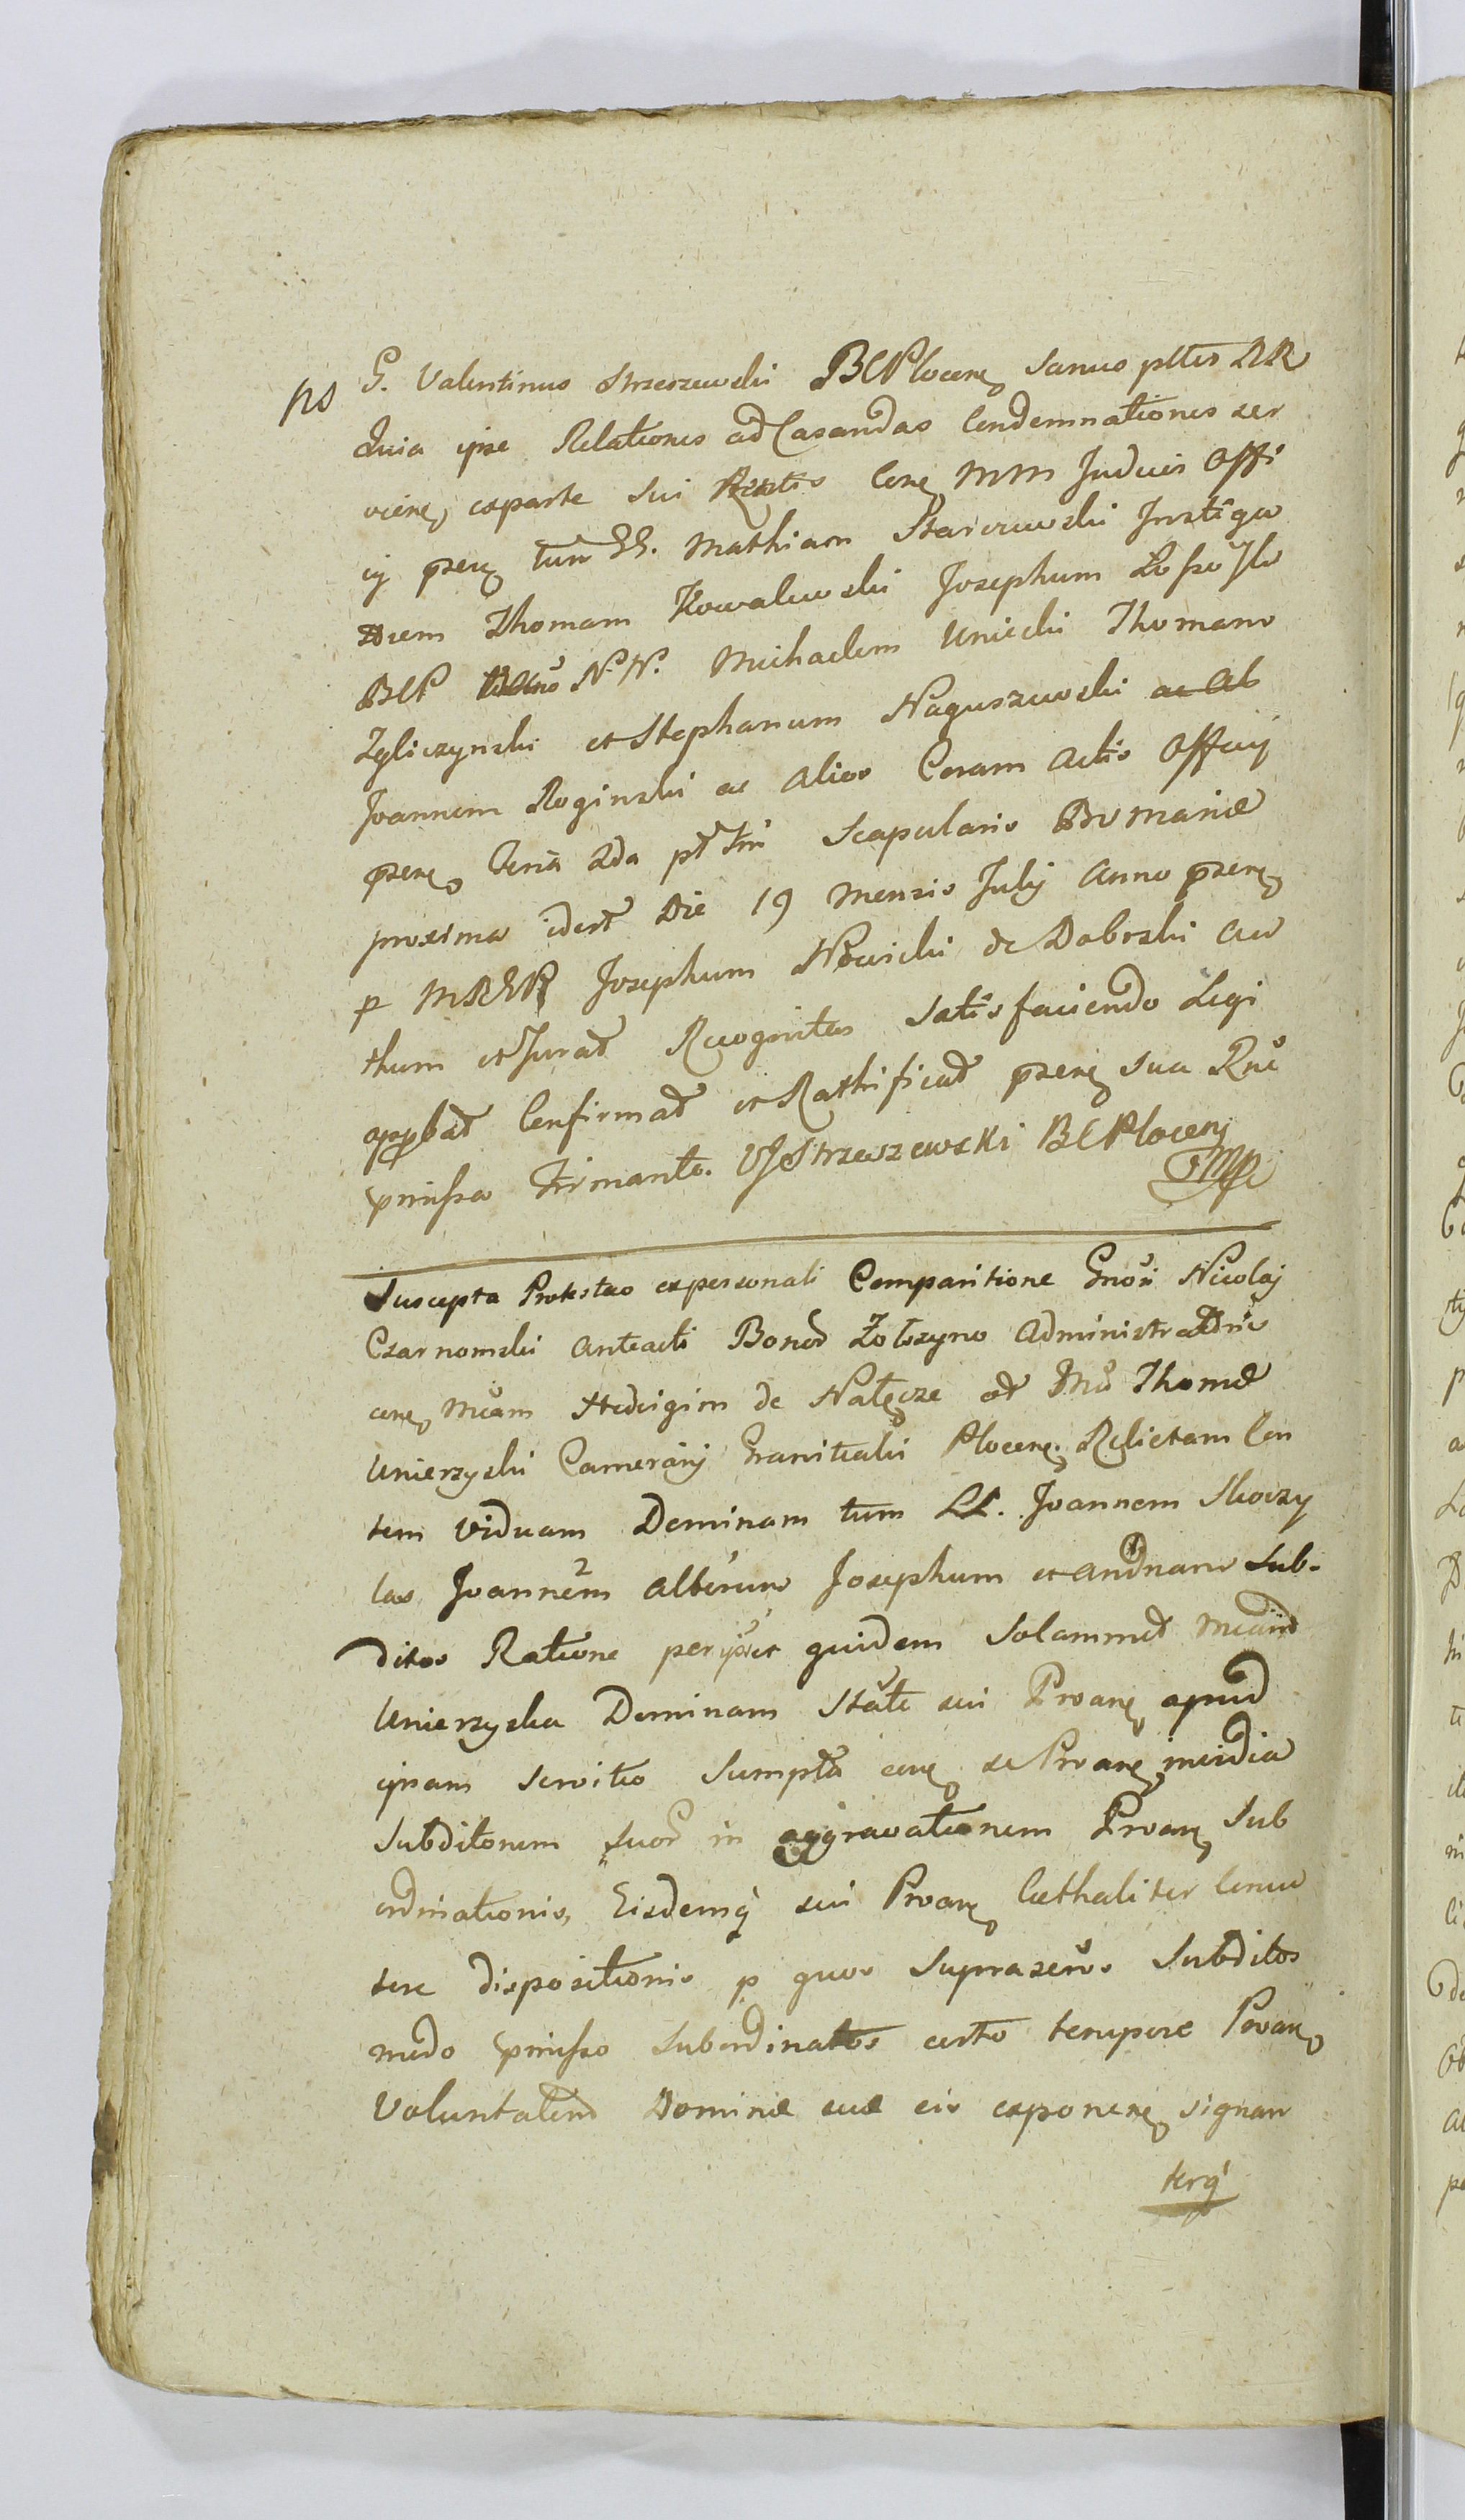 ps G. Valentinus Strzeszewski BCPlocen. Sanus pltes RR
Quia ipse Relationes ad Casandas Condemnationes ser
vien. exparte sui Con. MM Judicii Offi
cij pzen. tum GG. Mathiam Starczewski Instiga
Thomam Kowalewski Josephum
BCP NN. Michaelem Uniecki Thomam
Zgliczynski et Stephanum Naguszewski ac Al
Joannem Roginski ac alios Coram Actis Officij
pzen. feria 2da pt Scapularis BV Mariae
proxima idest Die 19 Mensis Julij Anno pzen.
p Josephum Nowicki de Dobrski Au
thum et Jurat Recognitas Satisfaciendo Legi
approbat Confirmat et Rathificat pzen. sua
pmissa firmante. VJStrzeszewski BCPlocen.
MP
Suscepta Protestao expersonali Comparitione Gnosi Nicolaj
Czarnomski anteacti Bonor Zoltszyno Administratoris
con. Hedvigim de Natęcze ol Thomae
Unierzyski Camerarij Granitialis Plocen. Relictam Con
tem Viduam Dominam tum LL. Joannem Skoczy
las Joannem 2 Alterum Josephum et Andream Sub-
ditos Ratione quidem Solammet
Unierzyska Dominam Statu sui Proan. apud
ipsam servitio Sumpta con. se Proan. invidia
Subditorum suor in aggravationem Proan. Sub
ordinationis, Eisdemq sui Proan. Laethaliter
tere dispositionis p quos Suprascros Subditos
modo pmisso Subordinatos certo tempore Proan.
Voluntatem Dominae suae eis exponen. signan
terq